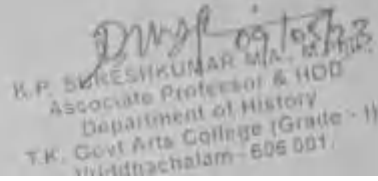 09/05/23
K.P. SURESHKUMAR M.A.,
Associate Professor & HOD
Department of History
T.K. Govt Arts College (Grade - I)
Vriddhachalam - 606 001.